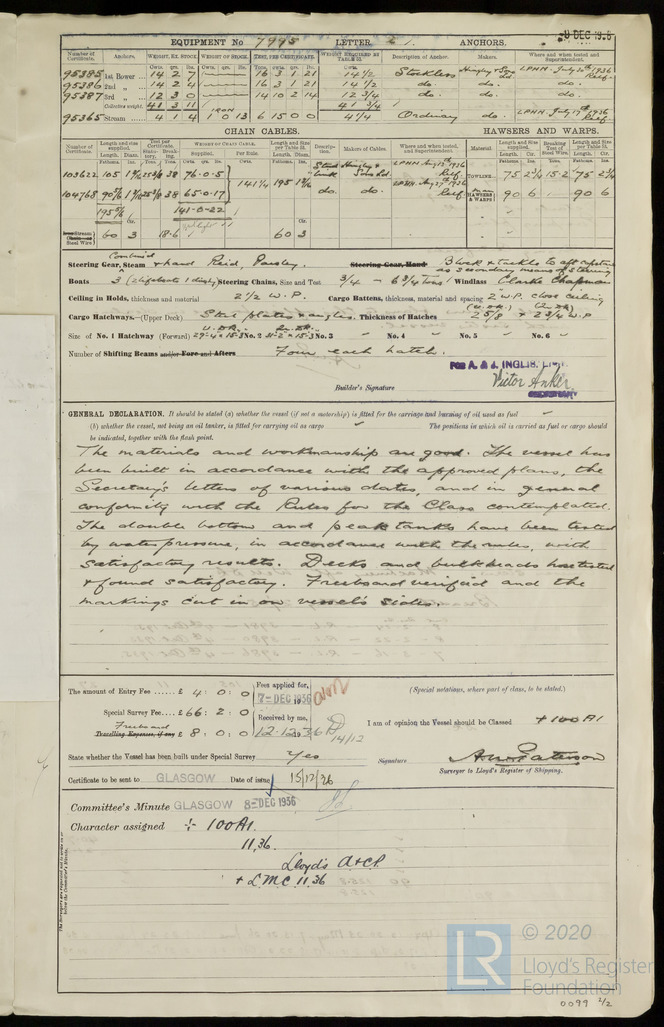 9 DEC 1936
EQUIPMENT No 7995 LETTER ANCHORS.
Number of Certificate. Anchors. WEIGHT, EX. STOCK. WEIGHT OF STOCK. TEST, PER CERTIFICATE. WEIGHT REQUIRED BY TABLE 31. Description of Anchor. Makers. Where and when tested and Superintendent.
95385 1st Bower 14 2 7 16 3 1 21 14 1/2 Stockless Hingley & Sons Ld. LPHN. July 10th 1936 Relf.
95386 2nd „ 14 2 4 16 3 1 21 14 1/2 do. do. do.
95387 3rd „ 12 3 0 14 10 2 14 12 3/4 do. do. do.
Collective weight 41 3 11 41 3/4
IRON
95365 Stream 4 1 4 1 0 13 6 15 0 0 4 1/4 Ordinary do. LPHN. July 17th 1936 Relf.
CHAIN CABLES. HAWSERS AND WARPS.
103622 105 38 76-0-5 141 1/4 195 Stud link Hingley & Sons Ld. Relf. TOWLINE 75 2 1/4 15.2 75 2 1/4
104768 38 65-0-17 do. do. Relf. HAWSERS & WARPS 90 6 90 6
141-0-22
60 3 18.6 60 3
Combined
Steering Gear, Steam & hand Reid, Paisley. Steering Gear, Hand Block & tackle to aft capstan as secondary means of steering
Boats 3 (2 lifeboats 1 dinghy) Steering Chains, Size and Test 3/4 - 6 3/4 Tons Windlass Clarke Chapman
Ceiling in Holds, thickness and material 2 1/2 W.P. Cargo Battens, thickness, material and spacing 2" W.P. close ceiling
Cargo Hatchways.—(Upper Deck) Steel plates & angles. Thickness of Hatches 2 5/8 & 2 3/4 W.P
Size of No. 1 Hatchway (Forward) 29-4 x 15-3 No. 2 31-2 x 15-3 No. 3 No. 4 No. 5 No. 6
Number of Shifting Beams and/or Fore and Afters Four each hatch.
FOR A. & J. INGLIS, LIMTD.
Builder's Signature Victor Anker
SECRETARY
GENERAL DECLARATION. It should be stated (a) whether the vessel (if not a motorship) is fitted for the carriage and burning of oil used as fuel
(b) whether the vessel, not being an oil tanker, is fitted for carrying oil as cargo The positions in which oil is carried as fuel or cargo should
be indicated, together with the flash point.
The materials and workmanship are good. The vessel has
been built in accordance with the approved plans, the
Secretary's letters of various dates, and in general
conformity with the Rules for the Class contemplated.
The double bottom and peak tanks have been tested
by water pressure, in accordance with the rules, with
satisfactory results. Decks and bulkheads hose tested
& found satisfactory. Freeboard verified and the
markings cut in on vessel's sides.
The amount of Entry Fee £ 4 : 0 : 0 Fees applied for, 7-DEC 1936 (Special notations, where part of class, to be stated.)
Special Survey Fee £66 : 2 : 0 Received by me,
Freeboard
Travelling Expenses, if any £ 8 : 0 : 0 12.12.1936 14/12 I am of opinion the Vessel should be Classed +100A1
State whether the Vessel has been built under Special Survey Yes Signature
Surveyor to Lloyd's Register of Shipping.
Certificate to be sent to GLASGOW Date of issue 15/12/36
Committee's Minute GLASGOW 8-DEC 1936
Character assigned + 100A1.
11,36.
Lloyd's A&CP.
+ LMC 11,36
The Surveyors are requested not to write on or below the Committee's Minute.
LR
© 2020
Lloyd's Register
Foundation
0099 2/2